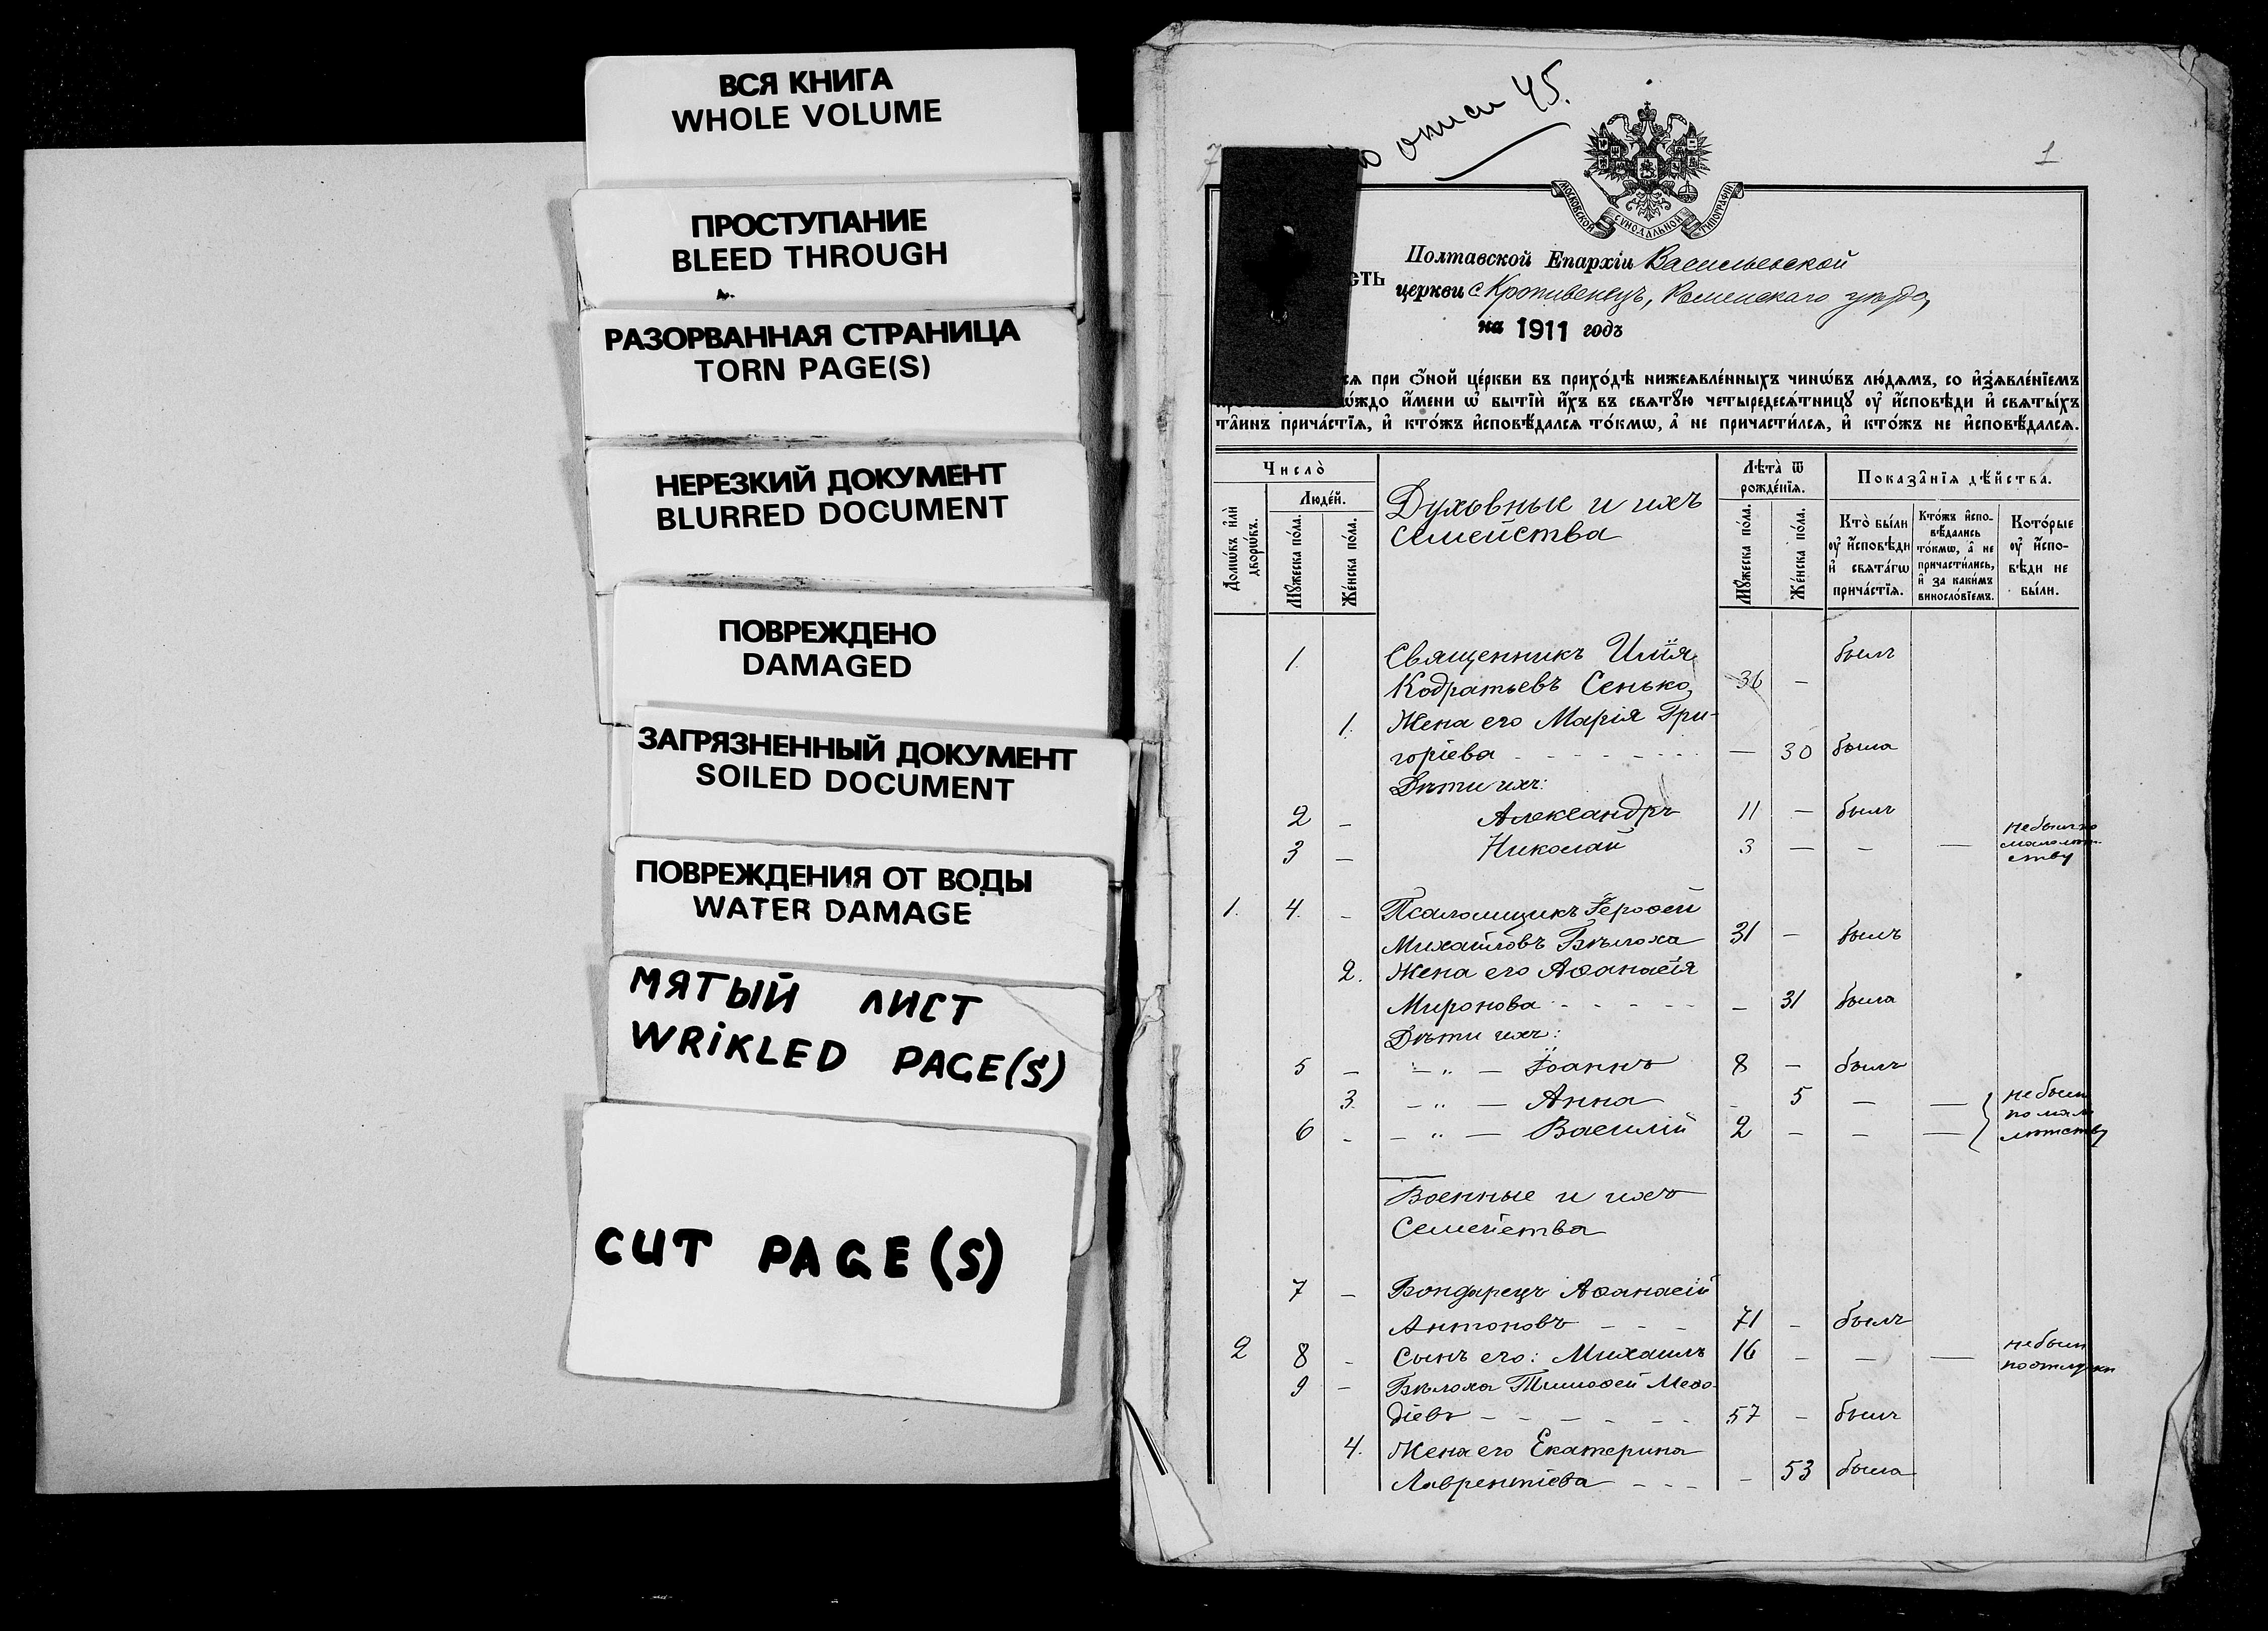 ВСЯ КНИГА
WHOLE VOLUME
ПРОСТУПАНИЕ
BLEED THROUGH
РАЗОРВАННАЯ СТРАНИЦА
TORN PAGE(S)
НЕРЕЗКИЙ ДОКУМЕНТ
BLURRED DOCUMENT
ПОВРЕЖДЕНО
DAMAGED
ЗАГРЯЗНЕННЫЙ ДОКУМЕНТ
SOILED DOCUMENT
ПОВРЕЖДЕНИЯ ОТ ВОДЫ
WATER DAMAGE
МЯТЫЙ ЛИСТ
WRiKLED PAGE(S)
CUT PAGE(S)
описи 45.
1
МОСКОВСКОЙ СѴНОДАЛЬНОЙ ТИПОГРАФІИ
Полтавской Епархіи Васильевской
сть церкви с Кропивенецъ, Роменскаго уѣзда,
на 1911 годъ
ся при ѻ҆́ной це́ркви въ прихо́дѣ нижеѧвле́нныхъ чинѡ́въ лю́дѧмъ, со и҆зѧвле́нїемъ
ко́ждо и҆́мени ѡ҆ бытїѝ и҆́хъ въ свѧтꙋ́ю четыредесѧ́тницꙋ ᲂу҆ и҆́сповѣди и҆ свѧты́хъ
та̑инъ прича́стїѧ, и҆ кто́жъ и҆сповѣ́дался то́кмѡ, а҆ не причасти́лся, и҆ кто́жъ не и҆сповѣ́дался.
Число̀
Люде́й.
Домѡ́къ и҆лѝ дворѡ́къ.
Мꙋ́жеска по́ла.
Же́нска по́ла.
Духовные и ихъ
семейства
Лѣта̀ ѿ рожде́нїѧ.
Мꙋ́жеска по́ла.
Же́нска по́ла.
Показа̑нїѧ дѣ́йства.
Кто̀ бы́ли ᲂу҆ и҆́сповѣди и҆ свѧта́гѡ прича́стїѧ.
Кто́жъ и҆спо-вѣ́дались то́кмѡ, а҆ не причасти́лись, и҆ за каки́мъ виносло́вїемъ.
Кото́рые ᲂу҆ и҆́спо-вѣди не бы́ли.
1. Священникъ Илія былъ
Кодратьевъ Сенько, 36 –
1. Жена его Марія Гри-
горіева – 30 была
Дѣти ихъ:
2 – Александръ 11 – былъ
3 – Николай 3 – – – не былъ по малолѣт-ству
1. 4. – Псаломщикъ Іероѳей
Михайловъ Бѣлоха 31 – былъ
2. Жена его Аѳанасія
Миронова – 31 была
Дѣти ихъ:
5 – – „ – Іоаннъ 8 – былъ
3. – „ – Анна – 5 – – не были
6 – – „ – Василій 2 – – – по мало лѣтству
Военные и ихъ
Семейства
7 – Бондарецъ Аѳанасій
Антоновъ – – – 71 – былъ
2 8 – Сынъ его: Михаилъ 16 – – – не былъ по отлучки
9 – Бѣлоха Тимоѳей Меѳо-
діевъ – – – 57 – былъ
4. Жена его Екатерина
Лаврентіева – – – – 53 была